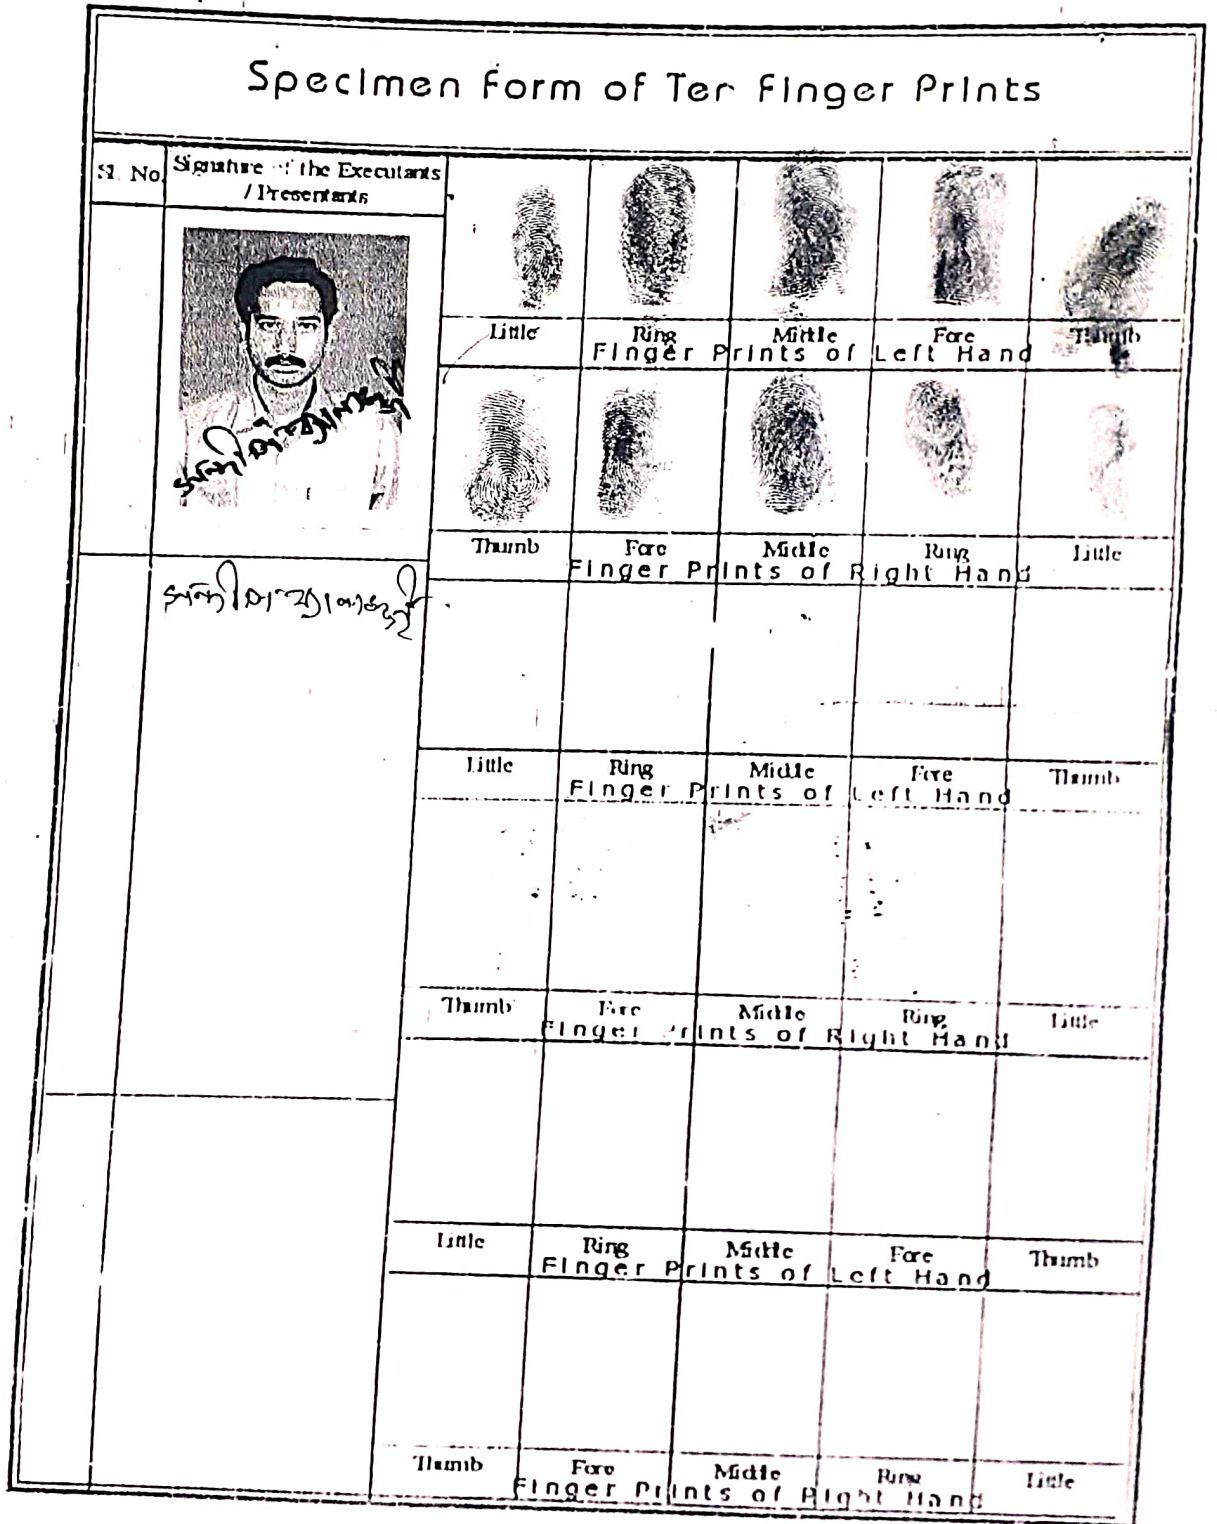 Specimen Form of Ter Finger Prints
Sl. No.
Signature of the Executants
/ Presentants
Little Ring Middle Fore Thumb
Finger Prints of Left Hand
Thumb Fore Middle Ring Little
Finger Prints of Right Hand
Little Ring Middle Fore Thumb
Finger Prints of Left Hand
Thumb Fore Middle Ring Little
Finger Prints of Right Hand
Little Ring Middle Fore Thumb
Finger Prints of Left Hand
Thumb Fore Middle Ring Little
Finger Prints of Right Hand